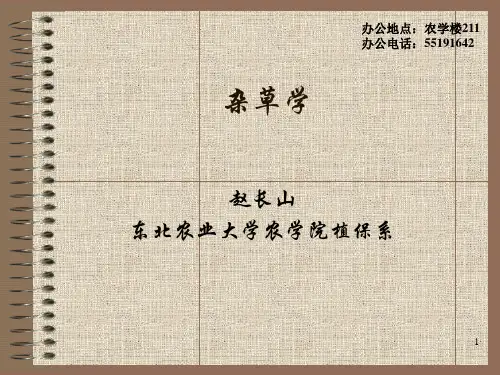 办公地点：农学楼211
办公电话：55191642
杂草学
赵长山
东北农业大学农学院植保系
1